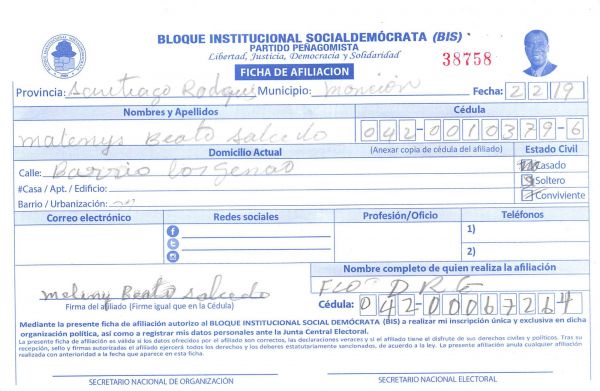 BLOQUE INSTITUCIONAL SOCIALDEMÓCRATA (BIS)
PARTIDO PEÑAGOMISTA
Libertad, Justicia, Democracia y Solidaridad
38758
FICHA DE AFILIACION
Provincia: Santiago Rodgui Municipio: monción Fecha: 2 2 19
Nombres y Apellidos Cédula
matenys Beato Salcedo 042-0010379-6
Domicilio Actual (Anexar copia de cédula del afiliado) Estado Civil
Calle: Barrio los genao Casado
#Casa / Apt. / Edificio: Soltero
Barrio / Urbanización: Conviviente
Correo electrónico Redes sociales Profesión/Oficio Teléfonos
1)
2)
Nombre completo de quien realiza la afiliación
meleny Beato Salcedo
Firma del afiliado (Firme igual que en la Cédula) Cédula: 042-0006726
Mediante la presente ficha de afiliación autorizo al BLOQUE INSTITUCIONAL SOCIAL DEMÓCRATA (BIS) a realizar mi inscripción única y exclusiva en dicha
organización política, así como a registrar mis datos personales ante la Junta Central Electoral.
La presente ficha de afiliación es válida si los datos ofrecidos por el afiliado son correctos, las declaraciones veraces y si el afiliado tiene el disfrute de sus derechos civiles y políticos. Tras su
recepción, sello y firmas autorizadas el afiliado ejercerá todos los derechos y los deberes estatutariamente sancionados, de acuerdo a la ley. La presente afiliación anula cualquier afiliación
realizada con anterioridad a la fecha que aparece en esta ficha.
SECRETARIO NACIONAL DE ORGANIZACIÓN SECRETARIO NACIONAL ELECTORAL